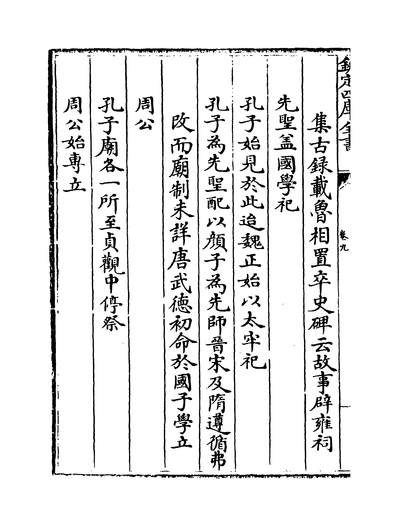 欽定四庫全書
卷九
集古録載魯相置卒史碑云故事辟雍祠
先聖盖國學祀
孔子始見於此迨魏正始以太牢祀
孔子為先聖配以顔子為先師晉宋及隋遵循弗
改而廟制未詳唐武德初命於國子學立
周公
孔子廟各一所至貞觀中停祭
周公始專立